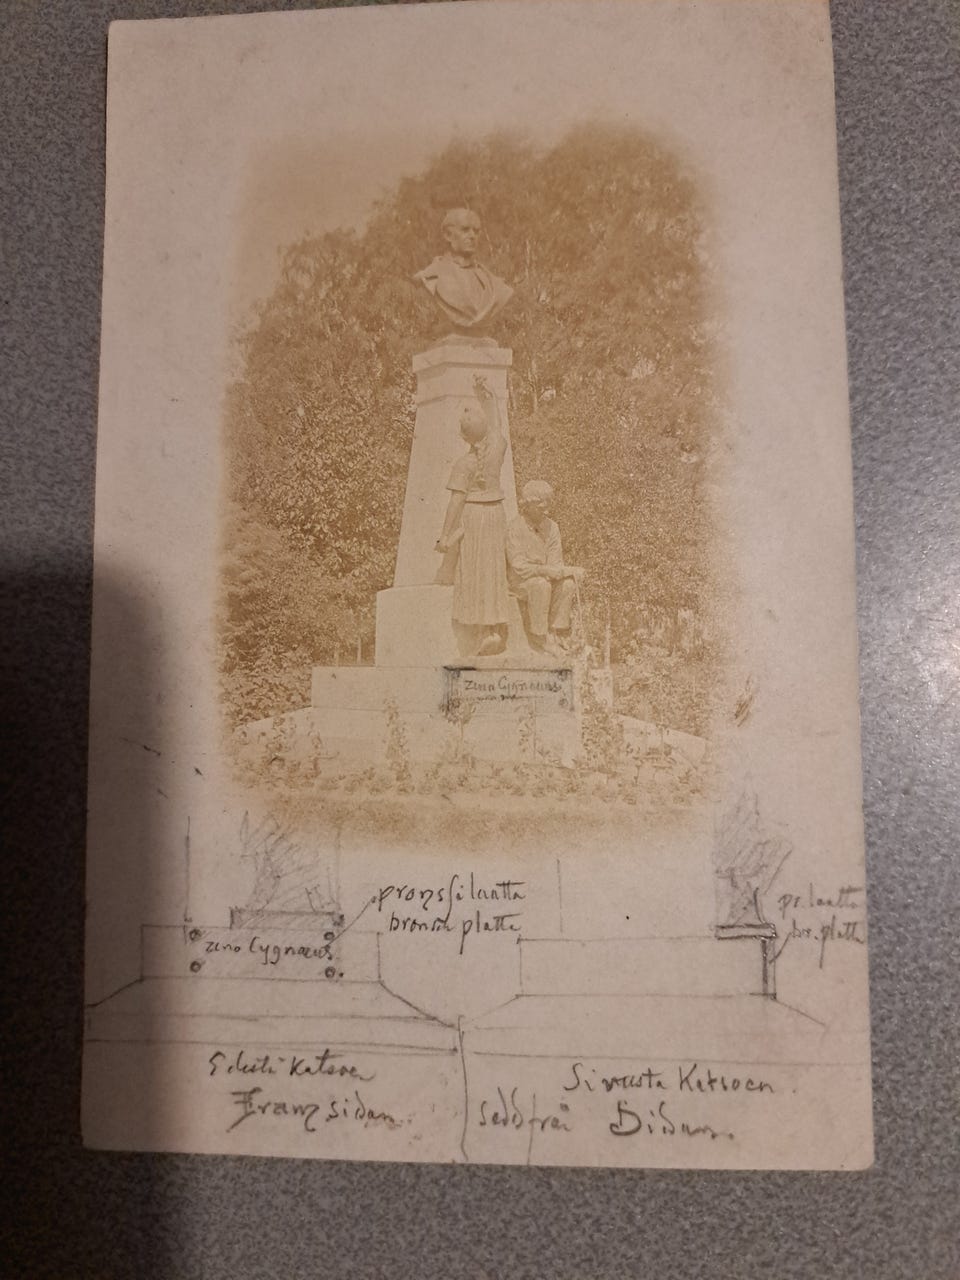 Uno Cygnaeus
pronssi laatta
brons platta
pr. laatta
br. platta
Uno Cygnaeus
Edestä Katsoen
Framsidan.
Sivusta Katsoen
sedd från Sidan.